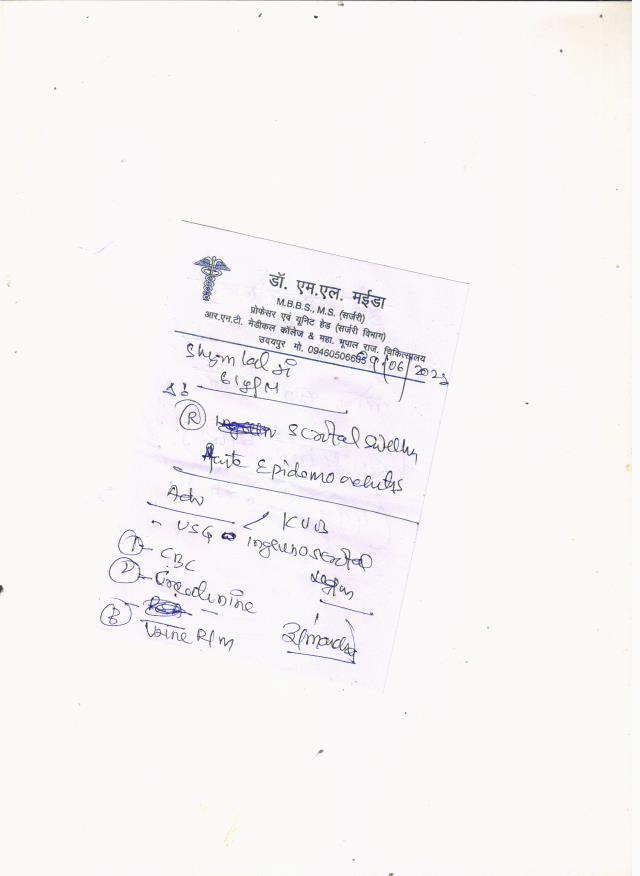 डॉ. एम.एल. मईडा
M.B.B.S., M.S. (सर्जरी)
प्रोफेसर एवं यूनिट हेड (सर्जरी विभाग)
आर.एन.टी. मेडीकल कॉलेज & महा. भूपाल राज. चिकित्सालय
उदयपुर मो. 094605066
9/06/202
Shyam lal Ji
61y/M
(R) scrotal swelling
Acute Epidemo orchitis
Adv
- USG < KUB
inguinoscrotal
region
(1) - CBC
(2) - Creatinine
(3) Urine R/M